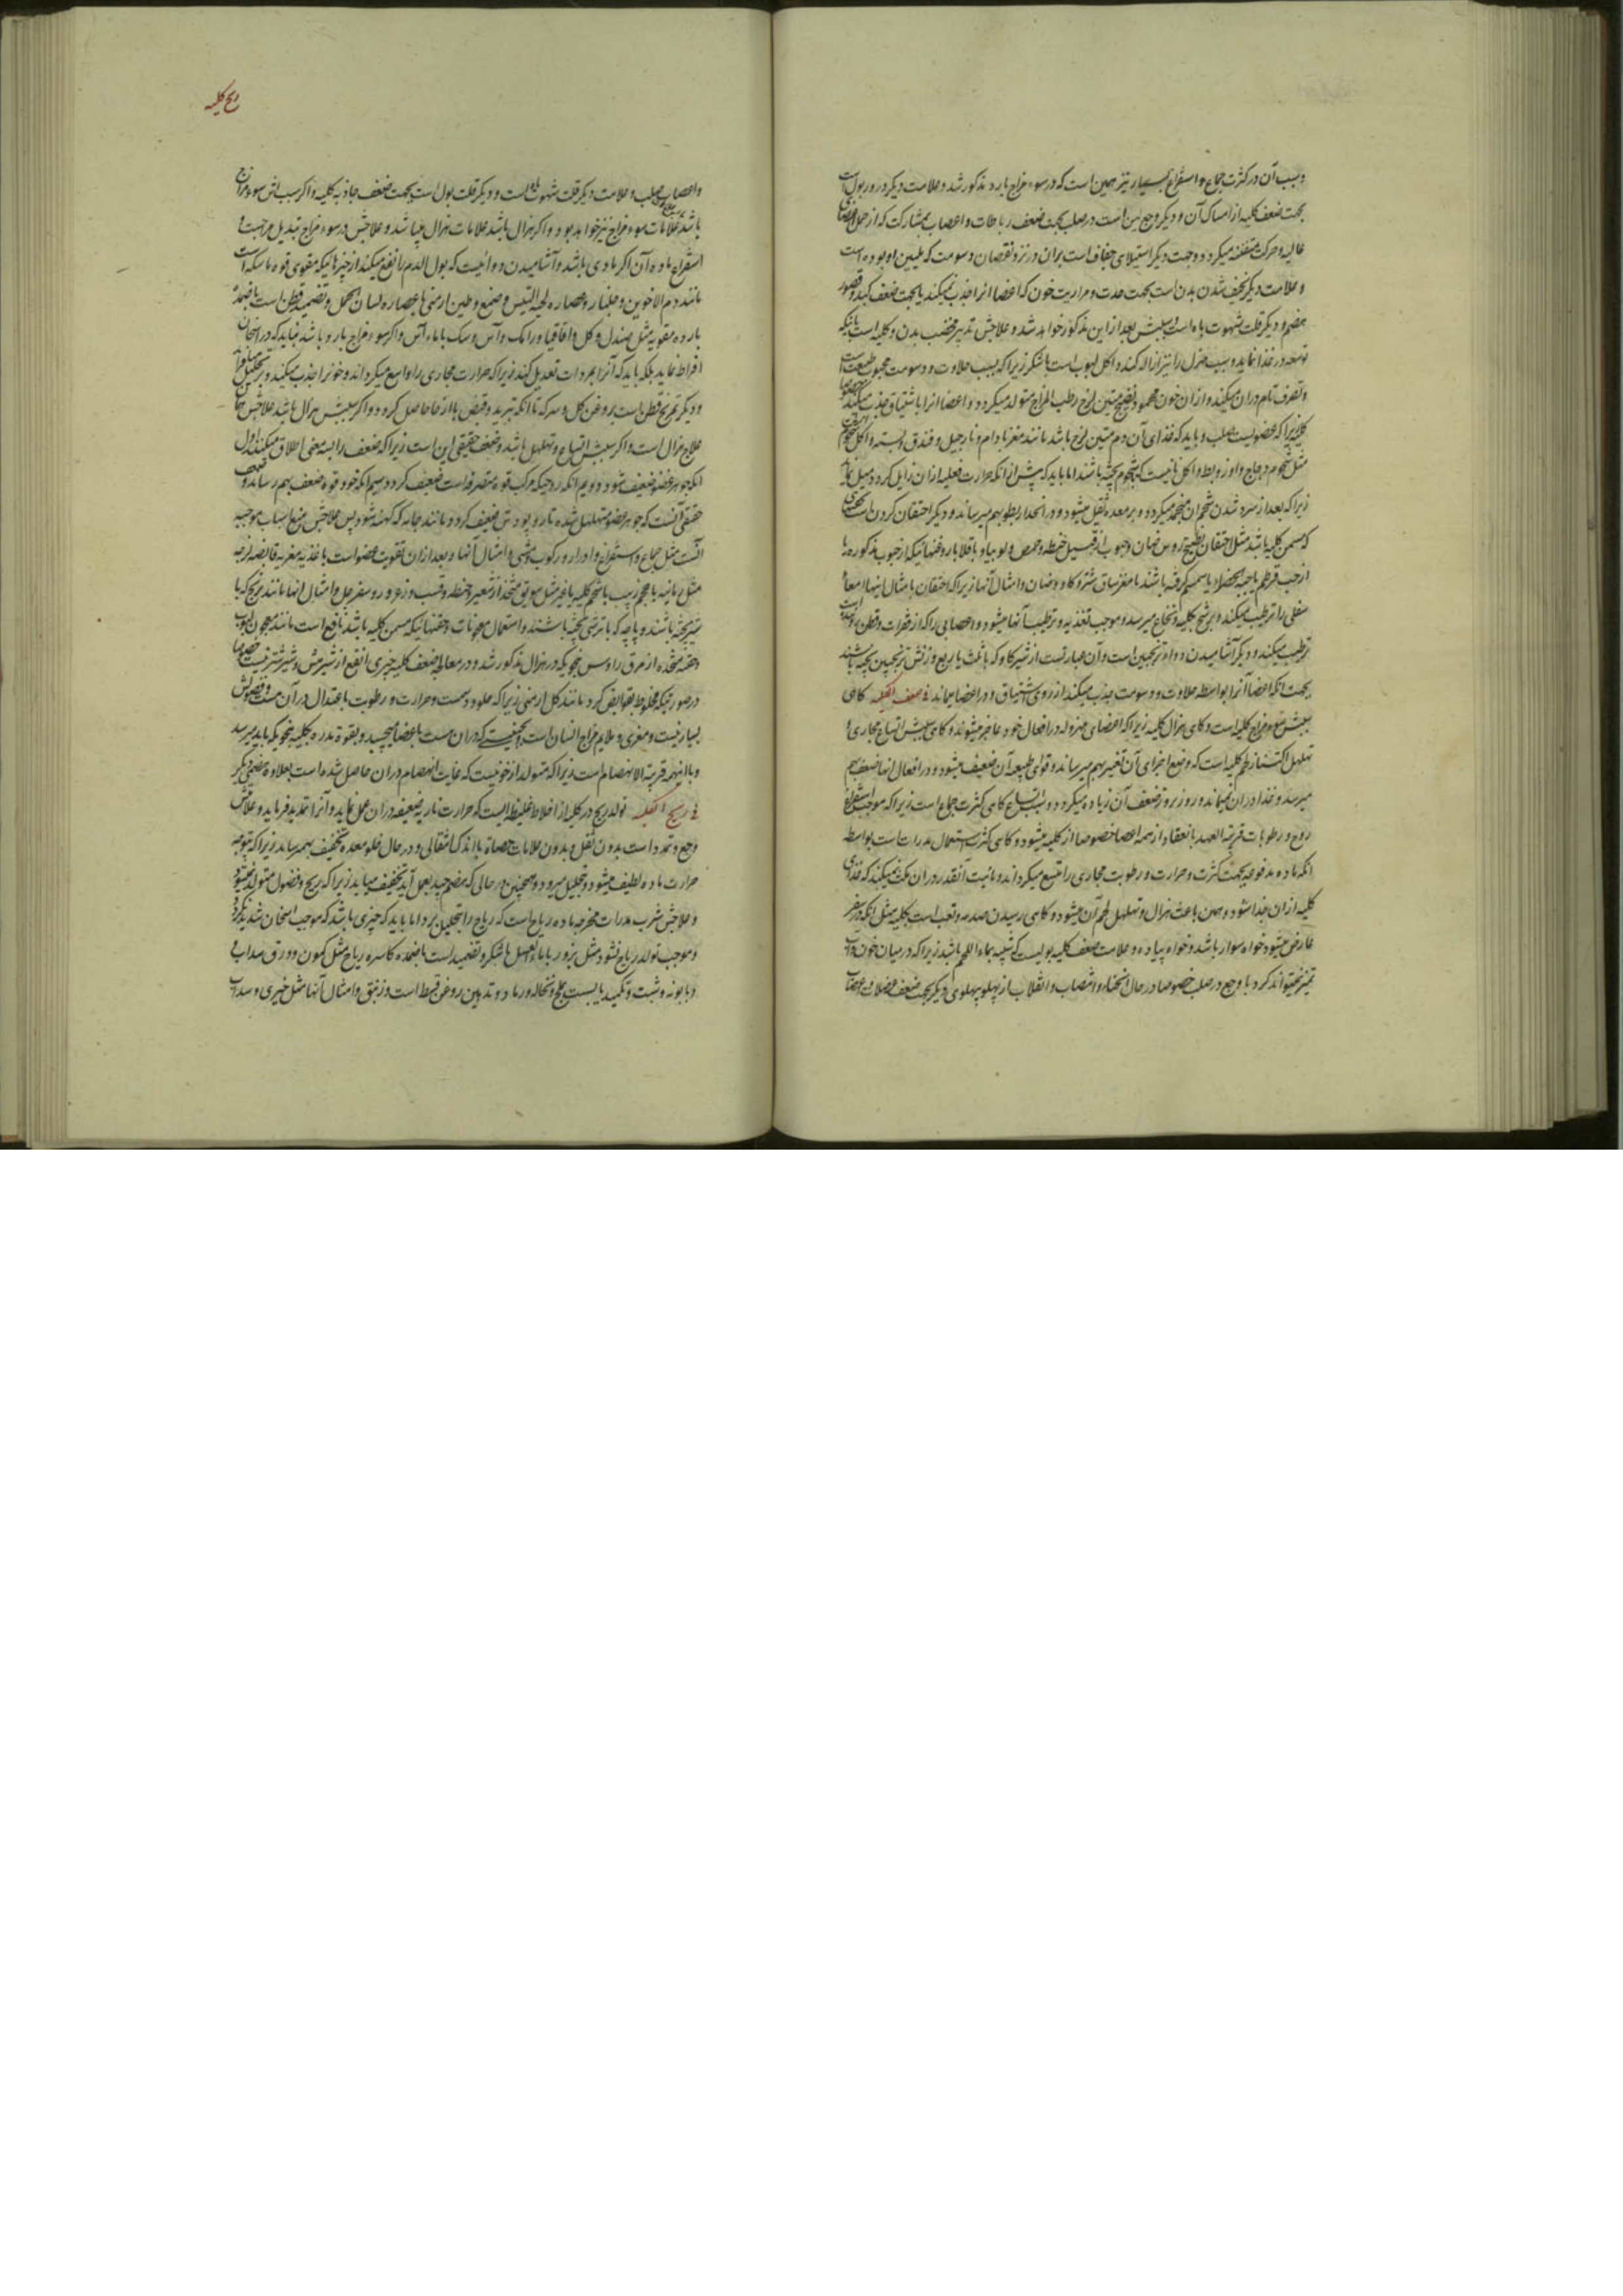 و سبب آن در کثرت جماع و استفراغ بسیار نیز همین است که در سوء مزاج بارد مذکور شد و علامت دیگر درور بول است
بجهت ضعف کلیه از امساک آن و دیگر وجع لین است در صلب بجهت ضعف رباطات و اعصاب بمشارکت که از حمل اعضای
عالیه و حرکت متفننه میگردد و جهت دیگر استیلای جفاف است بران در نزد نقصان دسومت که ملیین او بوده است
و علامت دیگر نحیف شدن بدن است بجهت حدت و مراریت خون که اعضا انرا جذب نمیکند یا بجهت ضعف کبد و قصور
هضم و دیگر قلت شهوت باه است و سببش بعد از این مذکور خواهد شد و علاجش تدبیر مخصب بدن و کلیه است بانیکه
توسعه در غذا نماید و سبب هزل را نیز ازاله کند و اکل لبوب است با شکر زیرا که بسبب حلاوت و دسومت محبوب طبیعت است
و تصرف تام دران میکند و از ان خون محمود نضیج متین لزج رطب المزاج متولد میگردد و اعضا انرا باشتیاق جذب میکند خصوصا
کلیه زیرا که عضویست صلب و باید که غذای آن دم متین لزج باشد مانند مغز بادام و نارجیل و فندق و پسته و اکل لحوم
مثل لحوم دجاج و اوز و بط و اکل نانیست که بشحوم پخته باشند اما باید که پیش از انکه حرارت فعلیه از ان زایل گردد میل نماید
زیرا که بعد از سرد شدن شحم ان منجمد میگردد و بر معده ثقیل میشود و در انحدار بطو بهم میرساند و دیگر احتقان کردن است بحقنهای
که مسمن کلیه باشد مثل احتقان بطبیخ رؤس ضان و حبوب از قبیل حنطه و حمص و لوبیا و باقلا با روغنهائیکه از حبوب مذکوره یا
از حب قرطم یا حبة الخضرا یا سمسم گرفته باشند با مغز ساق شتر و گاو و ضان و امثال آنها زیرا که احتقان بامثال اینها امعاء
سفلی را ترطیب میکند و برشح بکلیه و نخاع میرسد و موجب تغذیه و ترطیب آنها میشود و اعصابی را که از فقرات قطن رسته است
ترطیب میکند و دیگر آشامیدن دواء ترنجبین است و آن عبارتست از شیر گاو که با ثلث یا ربع وزنش ترنجبین پخته باشند
بجهت انکه اعضا آنرا بواسطه حلاوت و دسومت جذب میکند از روی اشتیاق و در اعضا میماند فی ضعف الکلیه گاهی
سببش سوء مزاج کلیه است و گاهی هزال کلیه زیرا که اعضای مهزوله در افعال خود عاجز میشوند و گاهی سببش اتساع مجاری و
تهلهل اکتناز لحم کلیه است که وضع اجزای آن تغیر بهم میرساند و قوای طبیعه آن ضعیف میشود و در افعال انها ضعف بهم
میرسد و غذا در ان نمیماند و روز بروز ضعف آن زیاده میگردد و سبب اتساع گاهی کثرت جماع است زیرا که موجب استفراغ
روح و رطوبات قریبة العهد بانعقاد از همه اعضا خصوصا از کلیه میشود و گاهی کثرت استعمال مدرات است بواسطه
انکه ماده مدفوعه بجهت کثرت و حرارت و رطوبت مجاری را متسع میگرداند و مائیت آنقدر در ان مکث نمیکند که غذای
کلیه از ان جدا شود و همین باعث هزال و تهلهل لحم آن میشود و گاهی رسیدن صدمه و تعب است بکلیه مثل انکه در سفر
عارض میشود خواه سوار باشد و خواه پیاده و علامت ضعف کلیه بولیست که شبیه بماء اللحم باشد زیرا که در میان خون و آب
تمیز نمیتواند کرد با وجع در صلب خصوصا در حال انحناء و انتصاب و انقلاب از پهلو بپهلوی دیگر بجهت ضعف عضلات و اعصاب
ریح کلیه
و اعصاب صلب و علامت دیگر قلت شهوت باه است و دیگر قلت بول است بجهت ضعف جاذبه کلیه و اگر سبب اش سوء مزاج
باشد علامات سوء مزاج نیز خواهد بود و اگر هزال باشد علامات هزال میباشد و علاجش در سوء مزاج تبدیل مزاجست و
استفراغ ماده آن اگر مادی باشد و آشامیدن دوائیست که بول الدم را نفع میکند از چیزهائیکه مقوی قوه ماسکه است
مانند دم الاخوین و جلنار و عصاره لحیة التیس و صمغ و طین ارمنی با عصاره لسان الحمل و تضمید قطن است باضمده
بارده مقویه مثل صندل و گل و اقاقیا و رامک و آس و سک با ماء آس و اگر سوء مزاج بارد باشد نباید که در اسخان
افراط نماید بلکه باید که آنرا بمبردات تعدیل کند زیرا که حرارت مجاری را واسع میگرداند و خونرا جذب میکنید
و دیگر تمریخ قطن است بروغن گل و سرکه تا انکه تبرید و قبض با ارخا حاصل گردد و اگر سببش هزال باشد علاجش همان
علاج هزال است و اگر سببش اتساع و تهلهل باشد و ضعف حقیقی این است زیرا که ضعف را بسه معنی اطلاق میکنند اول
انکه جوهر عضو ضعیف شود دویم انکه روحیکه مرکب قوه متصرفه است ضعیف گردد سیم انکه خود قوه ضعف بهم رساند و ضعف
حقیقی آنست که جوهر عضو متهلهل شده تار و پودش ضعیف گردد مانند جامه که کهنه شود پس علاجش منع اسباب موجبه
آنست مثل جماع و استفراغ و ادرار و رکوب و مشی و امثال آنها و بعد از ان تقویت عضو است باغذیه مغریه قابضه لزجه
مثل رمانیه با عجم زبیب با شحم کلیه یا غیر مثل سویق متخذ از شعیر و حنطه و قسب و زعرور و سفرجل و امثال انها مانند برنج که با
شیر پخته باشند و پاچه که با ترشی پخته باشند و استعمال معجونات و حقنهائیکه مسمن کلیه باشد نافع است مانند معجون لبوب
و حقنه متخذه از مرق رؤوس بنحویکه در هزال مذکور شد و در معالجه ضعف کلیه چیزی انفع از شیر میش و شیر شتر نیست خصوصا
در صورتیکه مخلوط بقوابض گردد مانند گل ارمنی زیرا که حلو و دسمست و حرارت و رطوبت باعتدال در آن هست و فضولش
بسیار نیست و مغری و ملایم مزاج انسان است بجبنیتی که در ان هست باعضا میچسبد و بقوة مدره بکلیه بنحویکه باید میرسد
و با اینهمه قریبة الانهضام است زیرا که متولد از خونیست که غایت انهضام در ان حاصل شده است بعلاوه هضمی دیگر
فی ریح الکلیه تولد ریح در کلیه از اخلاط غلیظه ایست که حرارت ناریه ضعیفه در ان عمل نماید و آنرا تمدید فرماید و علامتش
وجع و تمدد است بدون ثقل و بدون علامات حصاة با اندک انتقالی و در حال خلو معده تخفیف بهمرساند زیرا که بتوجه
حرارت ماده لطیف میشود و تحلیل میرود و همچنین در حالی که هضم جید بعمل آید تخفیف میابد زیرا که ریح و فضول متولد نمیشود
و علاجش شرب مدرات مخرجه ماده ریاح است که ریاح را تحلیل برد اما باید که چیزی باشد که موجب اسخان شدید نگردد
و موجب تولد ریاح نشود مثل بزور با ماء العسل یا شکر و تضمید است باضمده کاسره ریاح مثل کمون و ورق سداب
و بابونه و شبت و تکمید یابسست بملح و نخاله و رماد و تدهین بروغن قسط است و زنبق و امثال آنها مثل خیری و سداب